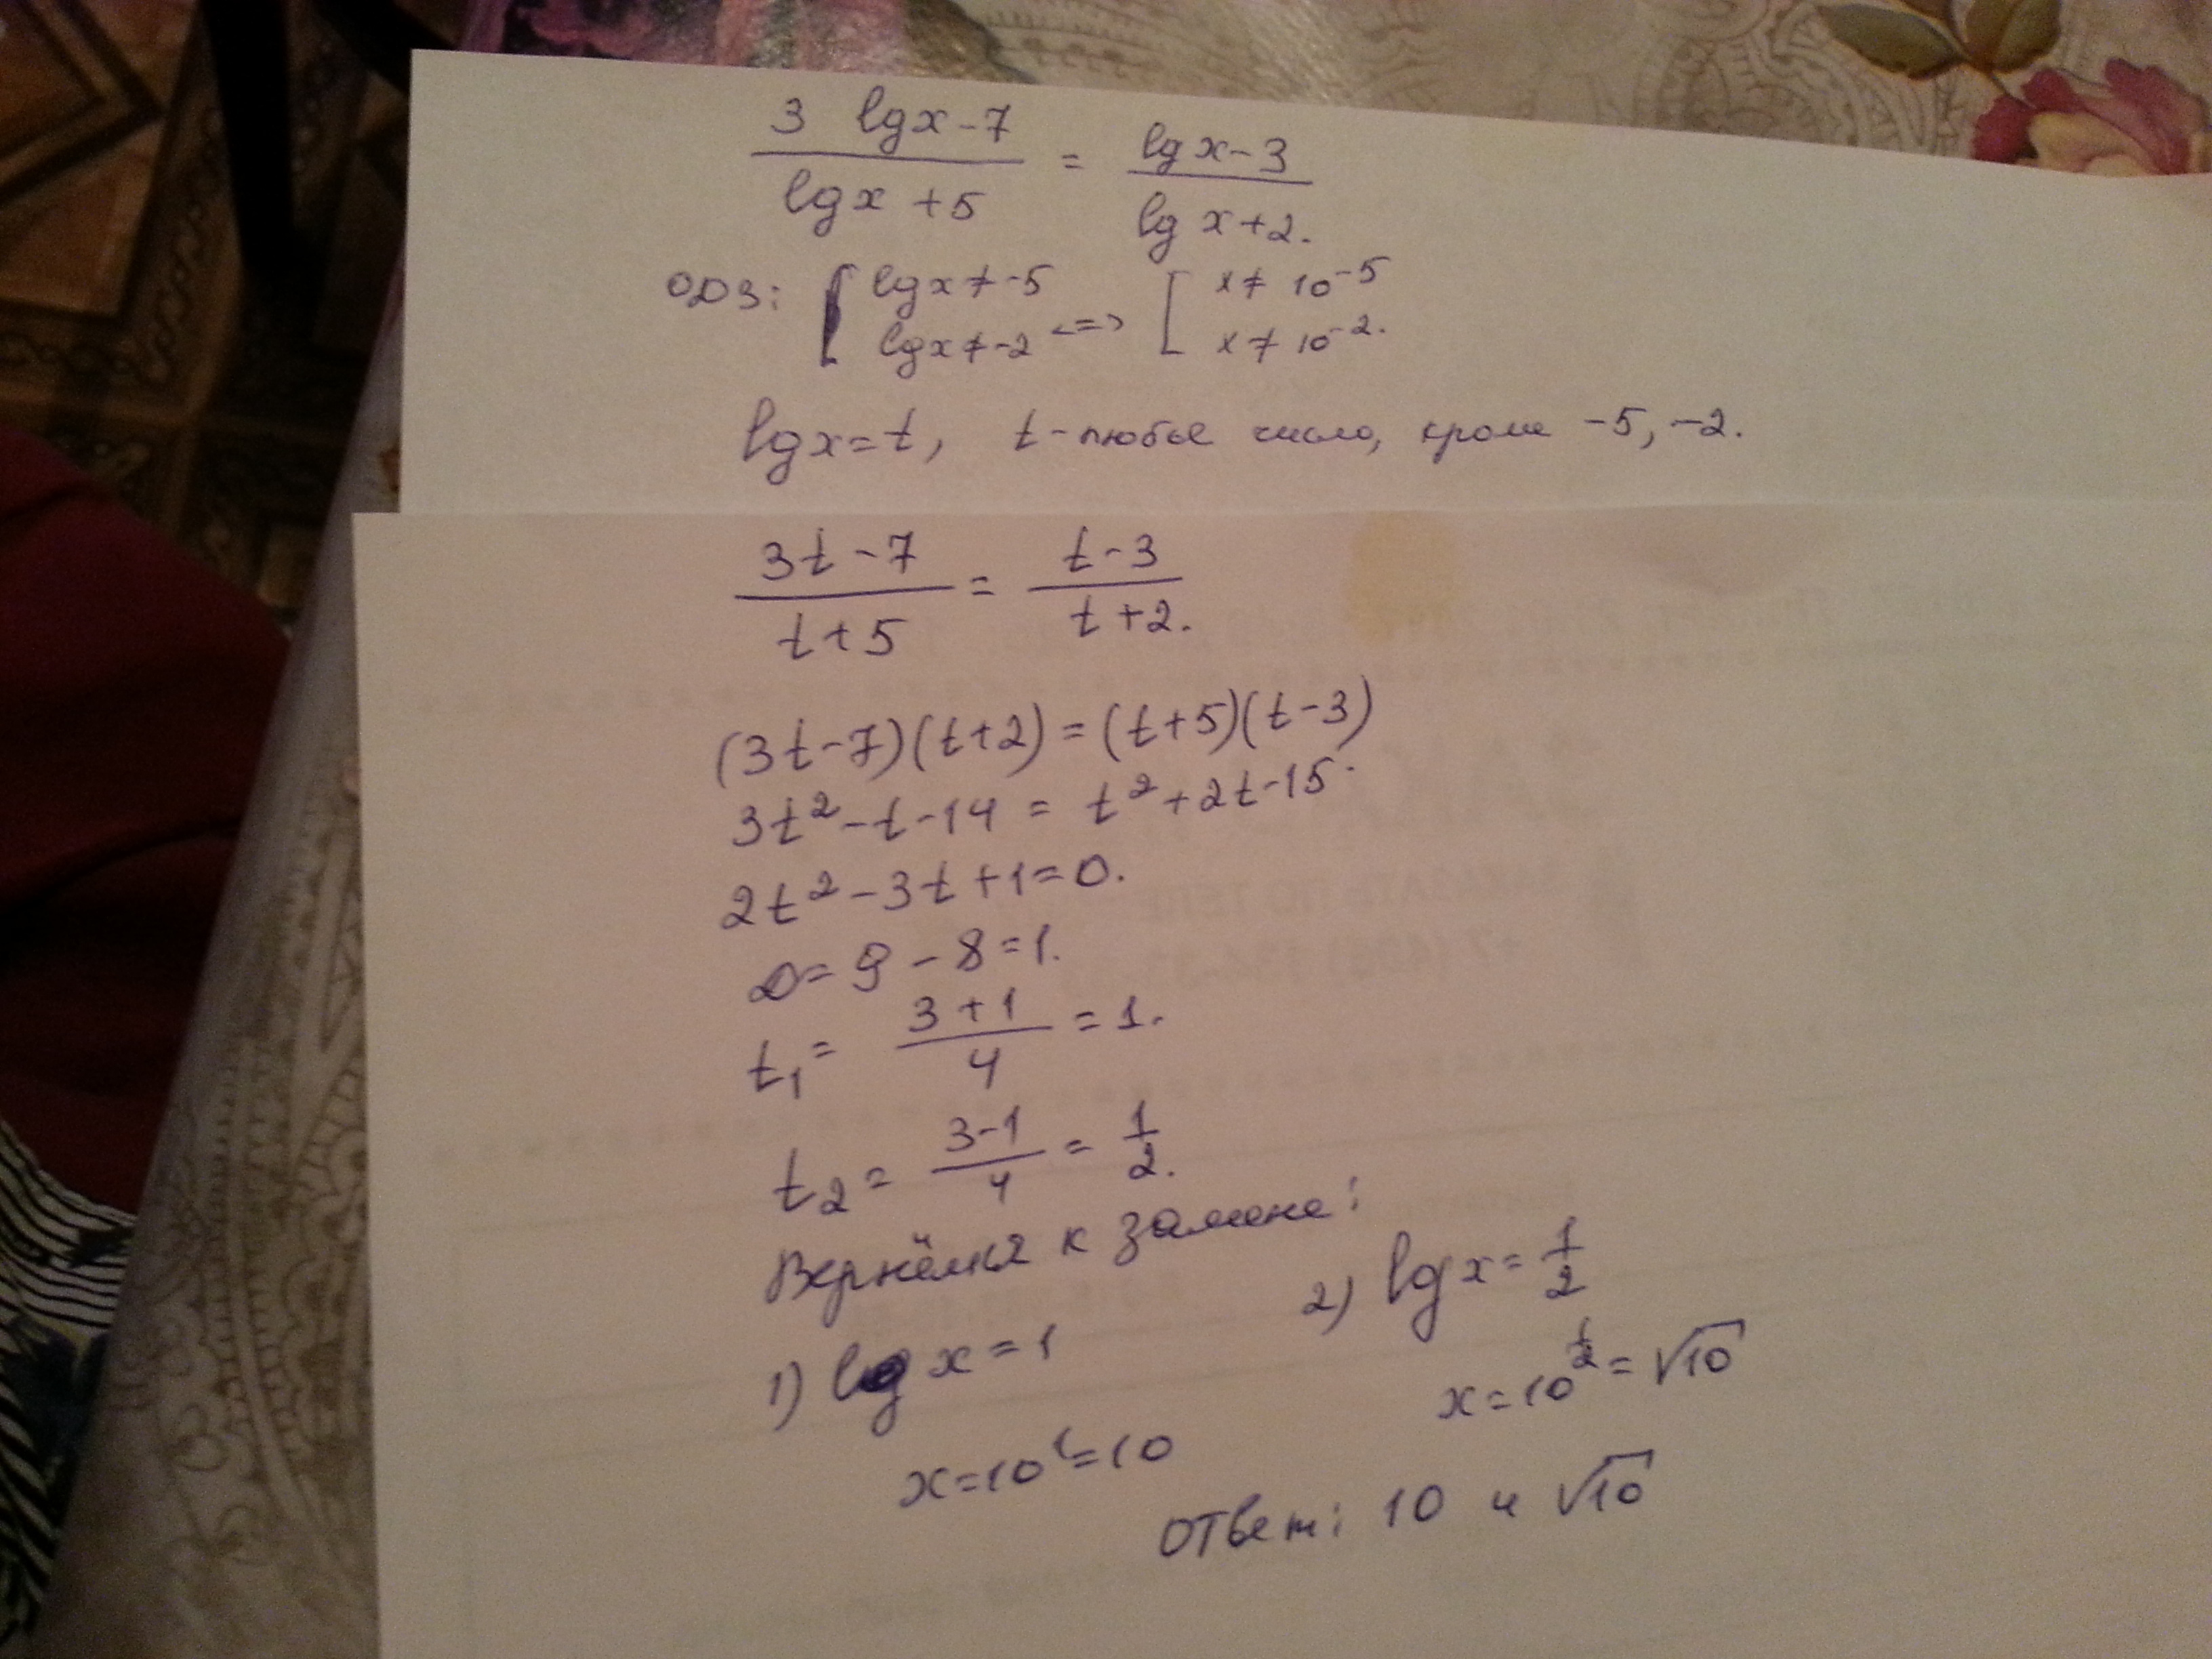 (3 lgx-7)/(lgx+5) = (lgx-3)/(lgx+2).
ОДЗ: [ lgx≠-5 <=> [ x≠10^-5
lgx≠-2 x≠10^-2.
lgx=t, t-любое число, кроме -5, -2.
(3t-7)/(t+5) = (t-3)/(t+2).
(3t-7)(t+2)=(t+5)(t-3)
3t²-t-14 = t²+2t-15.
2t²-3t+1=0.
D=9-8=1.
t₁= (3+1)/4 = 1.
t₂= (3-1)/4 = 1/2.
Вернёмся к замене:
1) lgx=1
2) lgx=1/2
x=10^1=10
x=10^(1/2)=√10
Ответ: 10 и √10